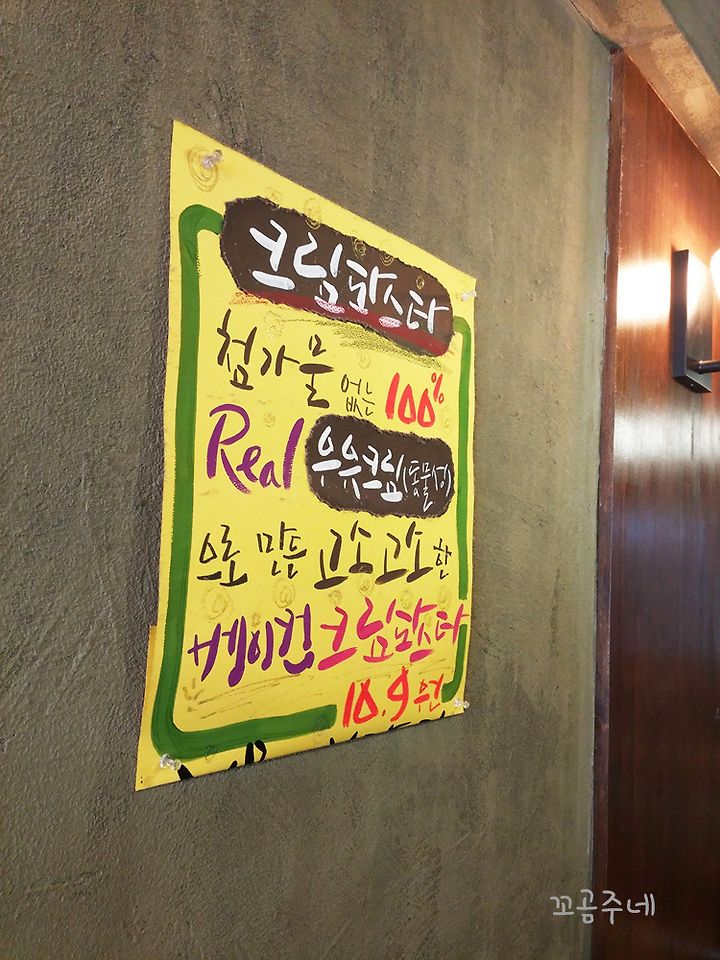 크림파스타
첨가물 없는 100%
Real 우유크림(동물성)
으로 만든 고소고소한
베이컨크림파스타
10.9원
꼬곰주네